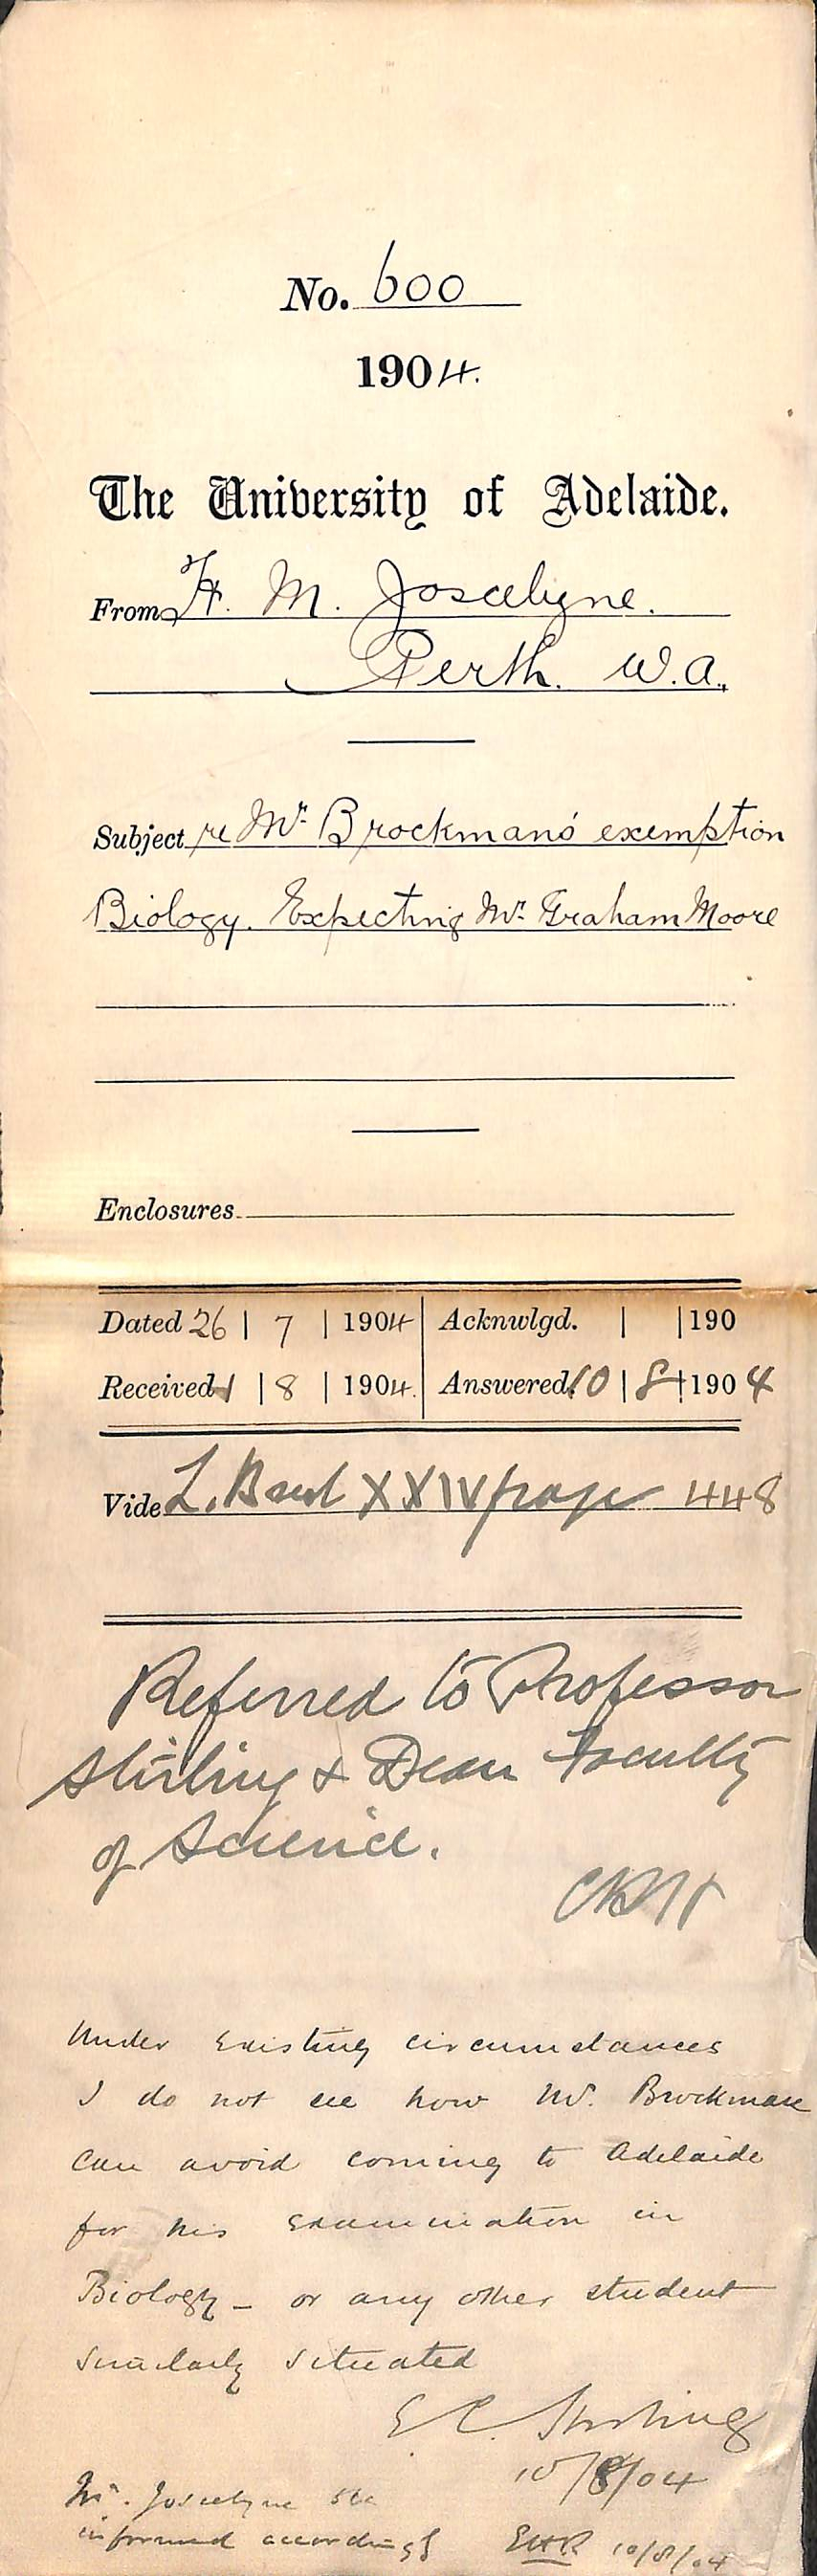 No. 600
1904.
The University of Adelaide.
From F. M. Joscelyne.
Perth. W.A.
Subject re Mr. Brockman's exemption
Biology. Expecting Mr. Graham Moore
Enclosures
Dated 26 | 7 | 1904 | Acknwlgd. | | 190
Received 1 | 8 | 1904. | Answered 10 | 8 | 1904
Vide L. Book XXIV page 448
Referred to Professor
Stirling & Dean Faculty
of Science.
Under existing circumstances
I do not see how Mr. Brockman
can avoid coming to Adelaide
for his examination in
Biology - or any other student
similarly situated
E. C. Stirling
10/8/04
Mr. Joscelyne to be
informed accordingly EHR 10/8/04